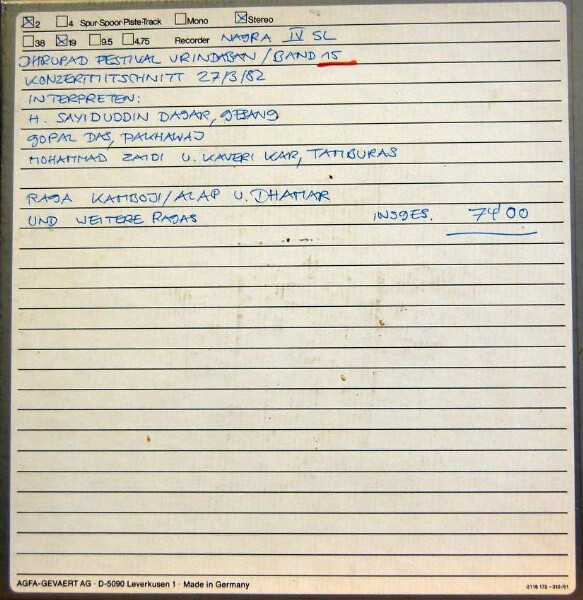 ☒2 ☐4 Spur·Spoor·Piste·Track ☐Mono ☒Stereo
☐38 ☒19 ☐9.5 ☐4.75 Recorder NAGRA IV SL
DHRUPAD FESTIVAL VRINDABAN / BAND 15
KONZERTMITSCHNITT 27/3/82
INTERPRETEN:
H. SAYIDUDDIN DAGAR, GESANG
GOPAL DAS, PAKHAWAJ
MOHAMMAD ZAIDI U. KAVERI KAR, TAMBURAS
RAGA KAMBOJI / ALAP U. DHAMAR
UND WEITERE RAGAS INSGES. 74'00
AGFA-GEVAERT AG · D-5090 Leverkusen 1 · Made in Germany